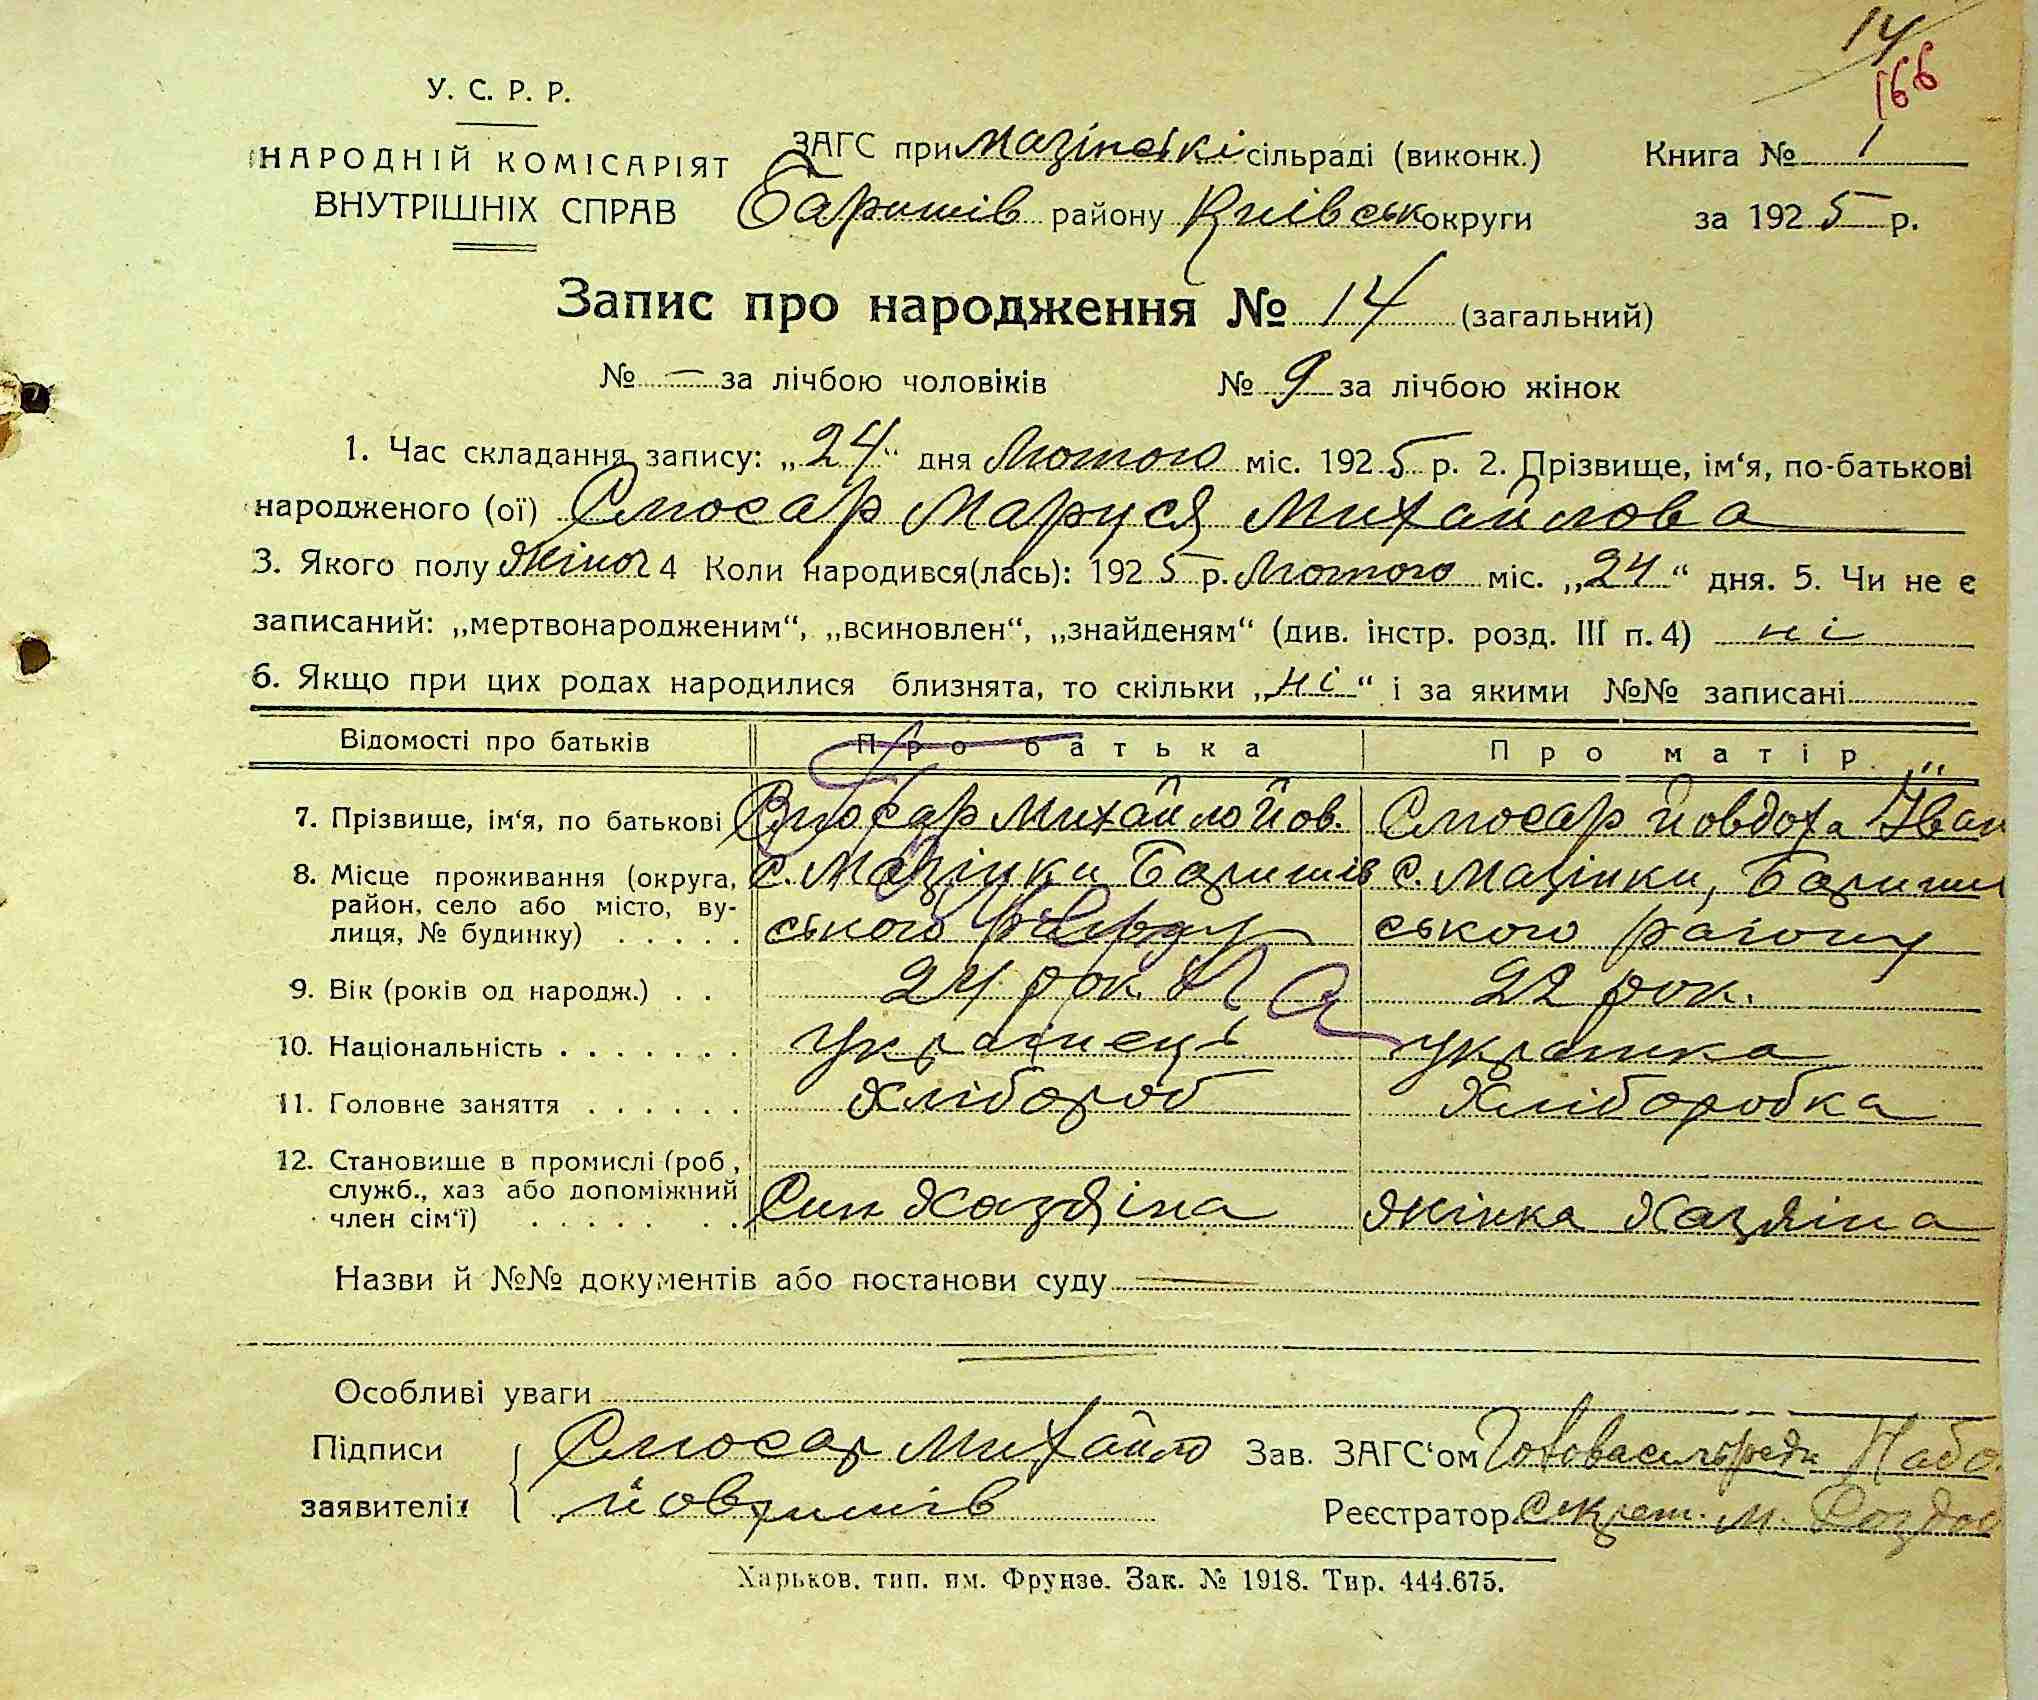 14
166
У. С. Р. Р.
НАРОДНІЙ КОМІСАРІЯТ
ВНУТРІШНІХ СПРАВ
ЗАГС при Мазінські сільраді (виконк.)
Баришів району Київськ округи
Книга № 1
за 1925 р.
Запис про народження № 14 (загальний)
№ — за лічбою чоловіків № 9 за лічбою жінок
1. Час складання запису: „24“ дня Лютого міс. 1925 р. 2. Прізвище, ім‘я, по-батькові
народженого (ої) Слюсар Маруся Михайлова
3. Якого полу жіноч 4 Коли народився(лась): 1925 р. Лютого міс. „24“ дня. 5. Чи не є
записаний: „мертвонародженим“, „всиновлен“, „знайденям“ (див. інстр. розд. III п. 4) ні
6. Якщо при цих родах народилися близнята, то скільки „ні“ і за якими №№ записані
Відомості про батьків Про батька Про матір
7. Прізвище, ім‘я, по батькові Слюсар Михайло Йов. Слюсар Йовдоха Іван
8. Місце проживання (округа, с. Мазінки Баришів с. Мазінки, Баришів
район, село або місто, ву-
лиця, № будинку) ського району ського району
9. Вік (років од народж.) 24 рок. 22 рок.
10. Національність українець українка
11. Головне заняття Хлібороб Хліборобка
12. Становище в промислі (роб.,
служб., хаз або допоміжний
член сім‘ї) Син Хазяіна жінка Хазяіна
Назви й №№ документів або постанови суду
Особливі уваги
Підписи
заявителів
Слюсар Михайло
Зав. ЗАГС‘ом
Реєстратор Секрет. М.
Харьков. тип. им. Фрунзе. Зак. № 1918. Тир. 444.675.